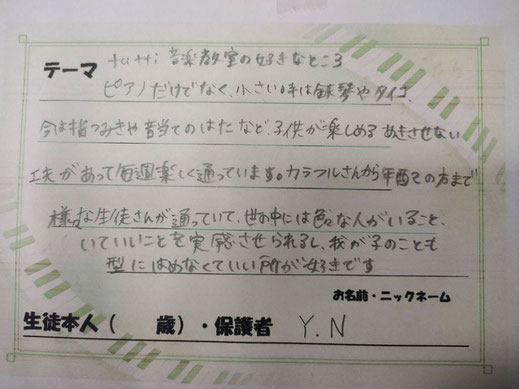 テーマ tutti 音楽教室の好きなところ
ピアノだけでなく、小さい時は鉄琴やタイコ、
今は指つみきや音当てのはたなど、子供が楽しめる あきさせない
工夫があって毎週楽しく通っています。カラフルさんから年配の方まで
様々な生徒さんが通っていて、世の中には色々な人がいること、
いていいことを実感させられるし、我が子のことも
型にはめなくていい所が好きです
お名前・ニックネーム
生徒本人（　　歳）・保護者　Y.N